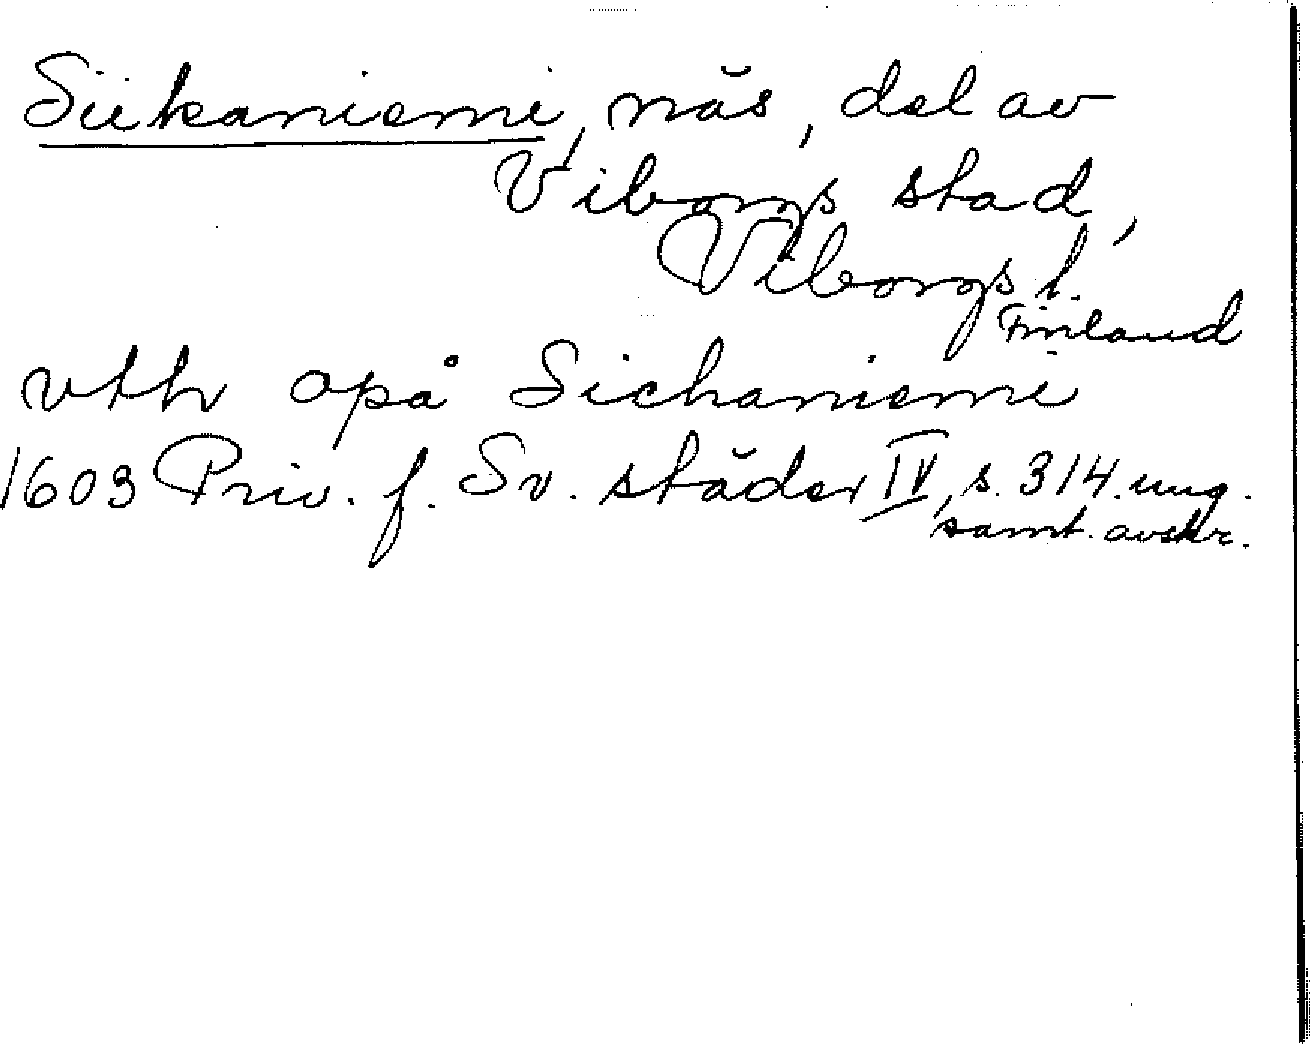 Siikaniemi, näs, del av
Viborgs stad,
Viborgs l.
Finland
vth opå Sichaniemi
1603 Priv. f. Sv. städer IV, s. 314. ung.
samt. avskr.